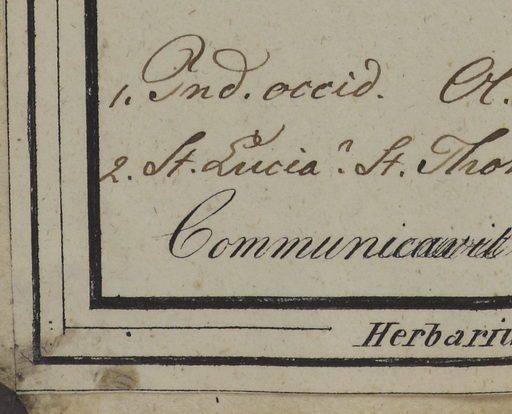 1. Ind. occid. Ol.
2. St. Lucia. St. Tho
Communicavit
Herbariu